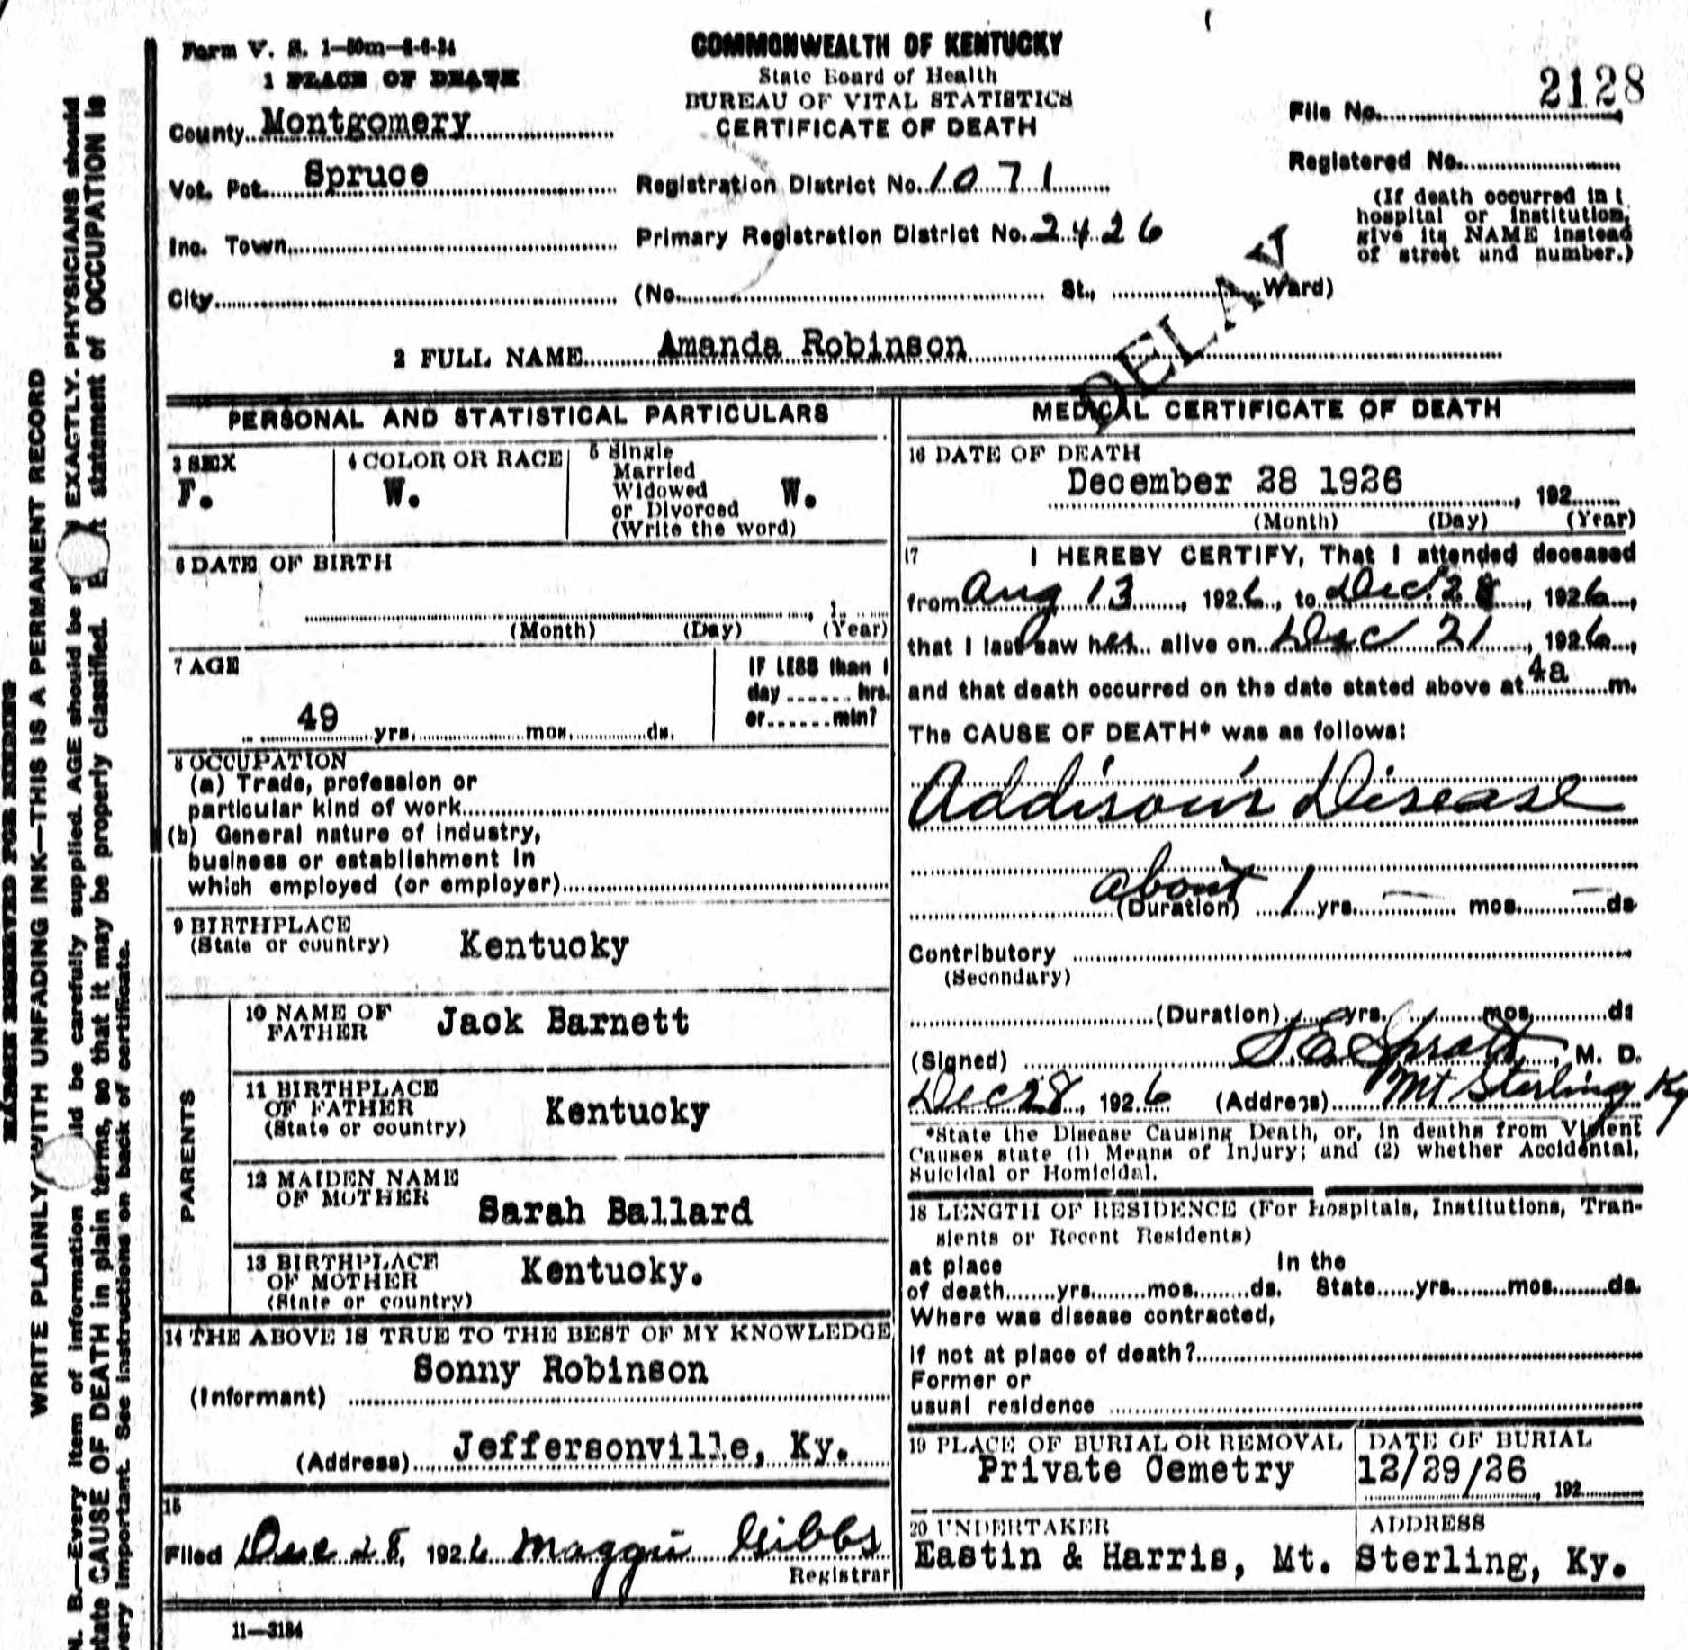 Form V. S. 1—50m—8-6-24
COMMONWEALTH OF KENTUCKY
State Board of Health
BUREAU OF VITAL STATISTICS
CERTIFICATE OF DEATH
1 PLACE OF DEATH
File No. 2128
County Montgomery
Registered No.
Vot. Pct. Spruce
Registration District No. 1071
(If death occurred in
hospital or institution,
give its NAME instead
of street and number.)
Inc. Town
Primary Registration District No. 2426
City (No. St., Ward)
DELAY
2 FULL NAME Amanda Robinson
PERSONAL AND STATISTICAL PARTICULARS
3 SEX
F.
4 COLOR OR RACE
W.
5 Single
Married
Widowed
or Divorced
(Write the word)
W.
6 DATE OF BIRTH
(Month) (Day) (Year)
7 AGE
49 yrs. mos. ds.
IF LESS than 1
day hrs.
or min?
8 OCCUPATION
(a) Trade, profession or
particular kind of work
(b) General nature of industry,
business or establishment in
which employed (or employer)
9 BIRTHPLACE
(State or country) Kentucky
PARENTS
10 NAME OF
FATHER Jack Barnett
11 BIRTHPLACE
OF FATHER
(State or country) Kentucky
12 MAIDEN NAME
OF MOTHER Sarah Ballard
13 BIRTHPLACE
OF MOTHER
(State or country) Kentucky.
14 THE ABOVE IS TRUE TO THE BEST OF MY KNOWLEDGE
(Informant) Sonny Robinson
(Address) Jeffersonville, Ky.
15
Filed Dec 28, 1926 Maggie Gibbs
Registrar
11—3184
MEDICAL CERTIFICATE OF DEATH
16 DATE OF DEATH
December 28 1926, 192
(Month) (Day) (Year)
17 I HEREBY CERTIFY, That I attended deceased
from Aug 13, 1926, to Dec. 28, 1926,
that I last saw her alive on Dec 21, 1926,
and that death occurred on the date stated above at 4a m.
The CAUSE OF DEATH* was as follows:
Addison's Disease
about
(Duration) 1 yrs. — mos. — ds
Contributory
(Secondary)
(Duration) yrs. mos. ds
(Signed) Spratt, M. D.
Dec 28, 1926 (Address) Mt Sterling Ky
*State the Disease Causing Death, or, in deaths from Violent
Causes state (1) Means of Injury; and (2) whether Accidental,
Suicidal or Homicidal.
18 LENGTH OF RESIDENCE (For Hospitals, Institutions, Tran-
sients or Recent Residents)
at place In the
of death yrs. mos. ds. State yrs. mos. ds.
Where was disease contracted,
if not at place of death?
Former or
usual residence
19 PLACE OF BURIAL OR REMOVAL
Private Cemetry
DATE OF BURIAL
12/29/26, 192
20 UNDERTAKER ADDRESS
Eastin & Harris, Mt. Sterling, Ky.
MARGIN RESERVED FOR BINDING
WRITE PLAINLY WITH UNFADING INK—THIS IS A PERMANENT RECORD
N. B.—Every item of information be carefully supplied. AGE should be EXACTLY. PHYSICIANS should
state CAUSE OF DEATH in plain terms, so that it may be properly classified. statement of OCCUPATION is
very important. See instructions on back of certificate.